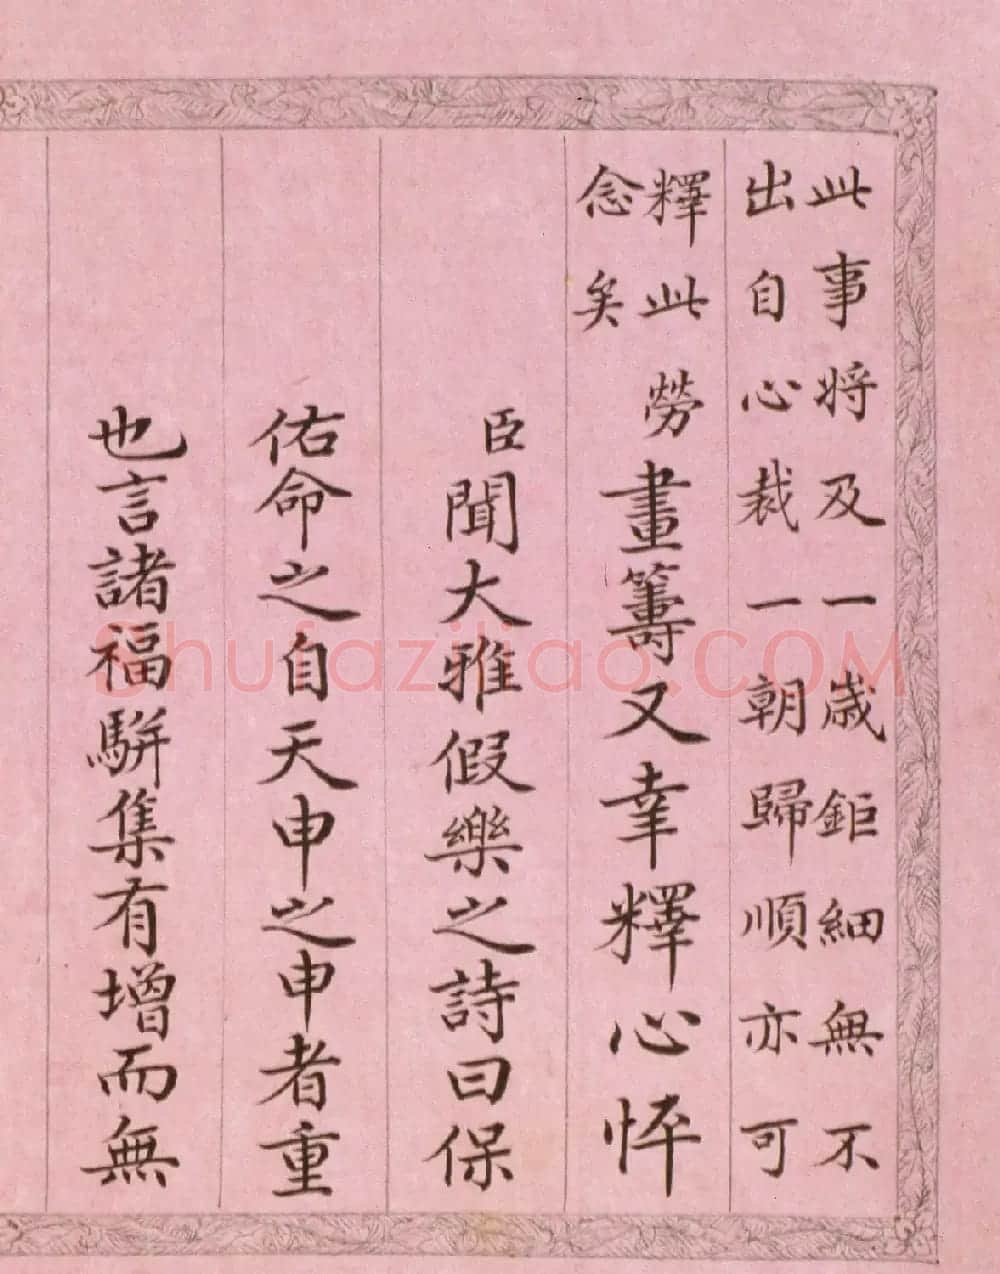 此事将及一歲鉅細無不
出自心裁一朝歸順亦可
釋此勞
念矣
畫籌又幸釋心怦
臣聞大雅假樂之詩曰保
佑命之自天申之申者重
也言諸福駢集有增而無
Shufaziliao.COM